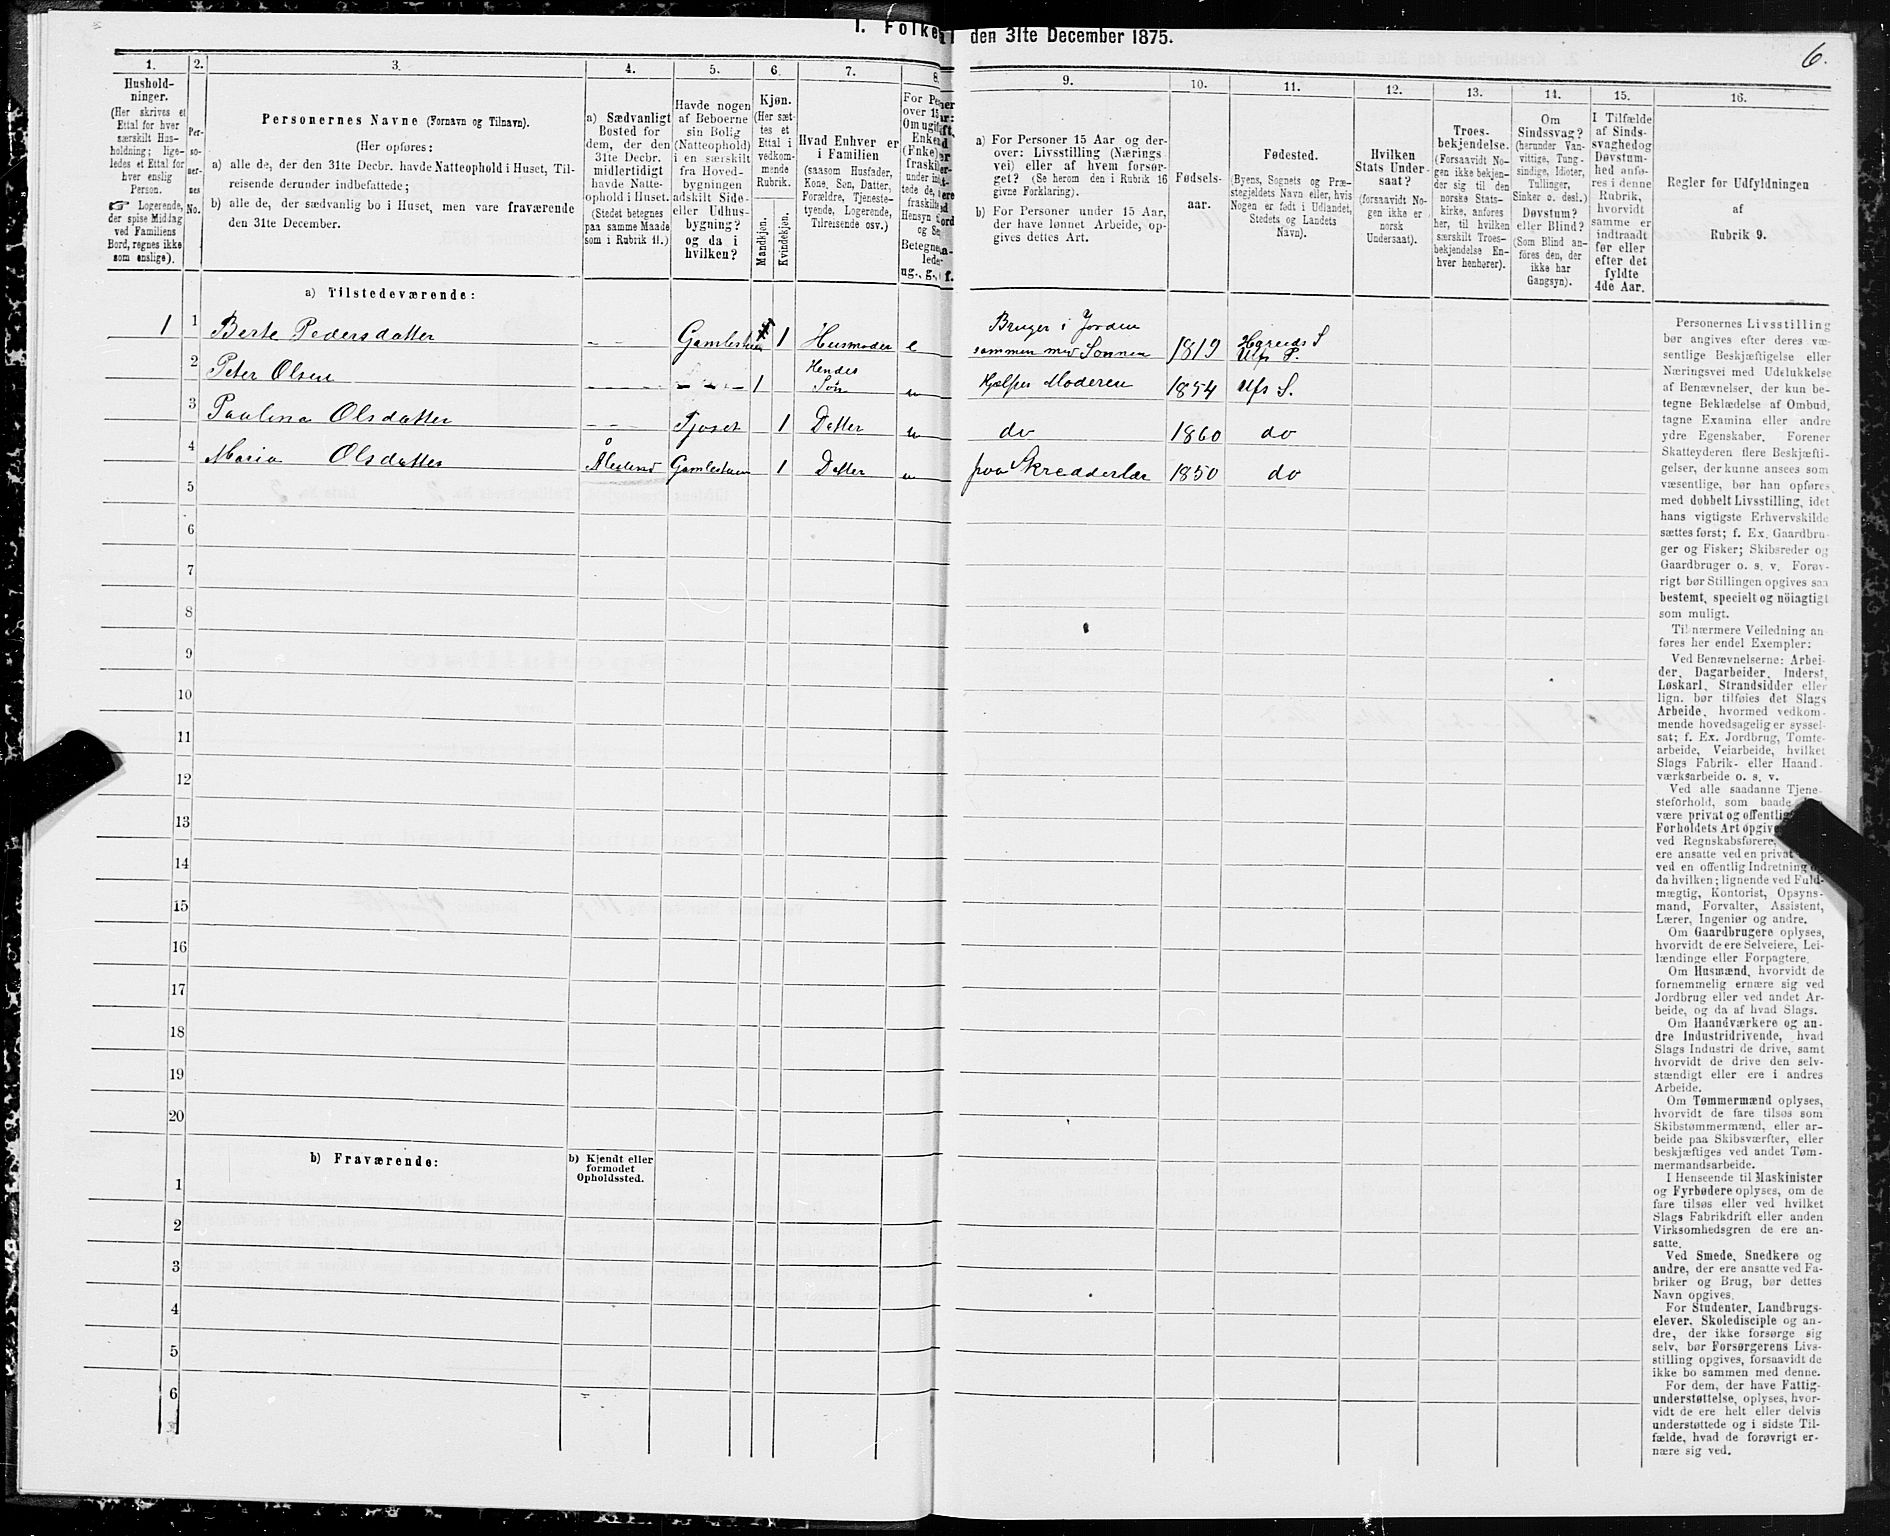 1. Folket
den 31te December 1875.
6.
1.
Hushold-
ninger.
(Her skrives et
Ettal for hver
særskilt Hus-
holdning; lige-
ledes et Ettal for
hver enslig
Person.
☞ Logerende,
der spise Middag
ved Familiens
Bord, regnes ikke
som enslige).
2.
Per-
so-
ner-
nes
No.
3.
Personernes Navne (Fornavn og Tilnavn).
(Her opføres:
a) alle de, der den 31te Decbr. havde Natteophold i Huset, Til-
reisende derunder indbefattede;
b) alle de, der sædvanlig bo i Huset, men vare fraværende
den 31te December.
4.
a) Sædvanligt
Bosted for
dem, der den
31te Decbr.
midlertidigt
havde Natte-
ophold i Huset.
(Stedet betegnes
paa samme Maade
som i Rubrik 11.)
5.
Havde nogen
af Beboerne
sin Bolig
(Natteophold)
i en særskilt
fra Hoved-
bygningen
adskilt Side-
eller Udhus-
bygning?
og da i
hvilken?
6.
Kjøn.
(Her sæt-
tes et
Ettal i
vedkom-
mende
Rubrik.
Mandkjøn.
Kvindekjøn.
7.
Hvad Enhver er
i Familien
(saasom Husfader,
Kone, Søn, Datter,
Forældre, Tjeneste-
tyende, Logerende,
Tilreisende osv.)
8.
9.
a) For Personer 15 Aar og der-
over: Livsstilling (Nærings
vei) eller af hvem forsør-
get? (Se herom den i Rubrik 16
givne Forklaring).
b) For Personer under 15 Aar,
der have lønnet Arbeide, op-
gives dettes Art.
10.
Fødsels-
aar.
11.
Fødested.
(Byens, Sognets og Præ-
stegjeldets Navn eller, hvis
Nogen er født i Udlandet,
Stedets og Landets
Navn).
12.
Hvilken
Stats Under-
saat?
(forsaavidt No-
gen ikke er
norsk
Undersaat).
13.
Troes-
bekjendelse.
(Forsaavidt No-
gen ikke bekjen-
der sig til den
norske Stats-
kirke, anføres
her, til hvilken
særskilt Troes-
bekjendelse En-
hver henhører).
14.
Om
Sindssvag?
(herunder Van-
vittige, Tung-
sindige, Idioter,
Tullinger,
Sinker o. desl.)
Døvstum?
eller Blind?
(Som Blind an-
føres den, der
ikke har
Gangsyn).
15.
I Tilfælde
af Sinds-
svaghed og
Døvstum-
hed anfø-
res i denne
Rubrik,
hvorvidt
samme er
indtraadt
før eller
efter det
fyldte
4de Aar.
16.
Regler for Udfyldningen
af
Rubrik 9.
a) Tilstedeværende:
1 1 Berte Pedersdatter - - 1 Husmoder e Bruger i Jorden sammen med Sønnen 1819 Hareids S Ulfs P.
2 Peter Olsen 1 Hendes Søn u Hjælper Moderen 1854 Ulfs S.
3 Paulina Olsdatter - - - 1 Datter u do 1860 do
4 Maria Olsdatter 1 Datter u paa 1850 do
5
6
7
8
9
10
11
12
13
14
15
16
17
18
19
20
b) Fraværende:
b) Kjendt eller
formodet
Opholdssted.
1
2
3
4
5
6
Personernes Livsstilling
bør angives efter deres væ-
sentlige Beskjæftigelse eller
Næringsvei med Udelukkelse
af Benævnelser, der kun be-
tegne Beklædelse af Ombud,
tagne Examina eller andre
ydre Egenskaber. Forener
Skatteyderen flere Beskjæfti-
gelser, der kunne ansees som
væsentlige, bør han opføres
med dobbelt Livsstilling, idet
hans vigtigste Erhvervskilde
sættes først; f. Ex. Gaardbru-
ger og Fisker; Skibsreder og
Gaardbruger o. s. v. Forøv-
rigt bør Stillingen opgives saa
bestemt, specielt og nöiagtigt
som muligt.
Til nærmere Veiledning an-
føres her endel Exempler:
Ved Benævnelserne: Arbei-
der, Dagarbeider, Inderst,
Løskarl, Strandsidder eller
lign. bør tilføies det Slags
Arbeide, hvormed vedkom-
mende hovedsagelig er syssel-
sat; f. Ex. Jordbrug, Tomte-
arbeide, Veiarbeide, hvilket
Slags Fabrik- eller Haand-
værksarbeide o. s. v.
Ved alle saadanne Tjene-
steforhold, som baade
være privat og offentlig
Forholdets Art opgiv
ved Regnskabsførere,
ere ansatte ved en privat
ved en offentlig Indretning
da hvilken; lignende ved Fuld-
mægtig, Kontorist, Opsyns-
mand, Forvalter, Assistent,
Lærer, Ingeniør og andre.
Om Gaardbrugere oplyses,
hvorvidt de ere Selveiere, Lei-
lændinge eller Forpagtere.
Om Husmænd, hvorvidt de
fornemmelig ernære sig ved
Jordbrug eller ved andet Ar-
beide, og da af hvad Slags.
Om Haandværkere og an-
dre Industridrivende, hvad
Slags Industri de drive, samt
hvorvidt de drive den selv-
stændigt eller ere i andres
Arbeide.
Om Tømmermænd oplyses,
hvorvidt de fare tilsøs som
Skibstømmermænd, eller ar-
beide paa Skibsværfter, eller
beskjæftiges ved andet Tøm-
mermandsarbeide.
I Henseende til Maskinister
og Fyrbødere oplyses, om de
fare tilsøs eller ved hvilket
Slags Fabrikdrift eller anden
Virksomhedsgren de ere an-
satte.
Ved Smede, Snedkere og
andre, der ere ansatte ved Fa-
briker og Brug, bør dettes
Navn opgives.
For Studenter, Landbrugs-
elever, Skoledisciple og an-
dre, der ikke forsørge sig
selv, bør Forsørgerens Livs-
stilling opgives, forsaavidt de
ikke bo sammen med denne.
For dem, der have Fattig-
understøttelse, oplyses, hvor-
vidt de ere helt eller delvis
understøttede og i sidste Til-
fælde, hvad de forøvrigt er-
nære sig ved.